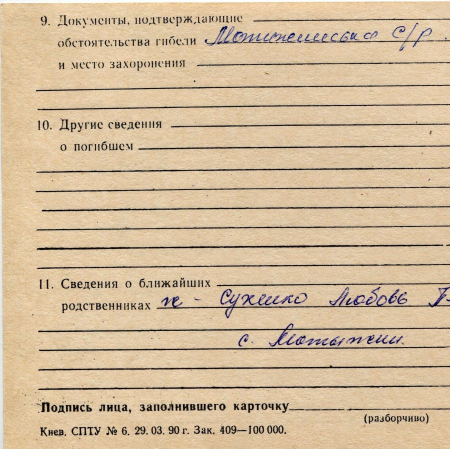 9. Документы, подтверждающие
обстоятельства гибели Мотыжинська с/р.
и место захоронения
10. Другие сведения
о погибшем
11. Сведения о ближайших
родственниках ж - Сухенко Любовь
с. Мотыжин.
Подпись лица, заполнившего карточку
(разборчиво)
Киев. СПТУ № 6. 29. 03. 90 г. Зак. 409—100 000.